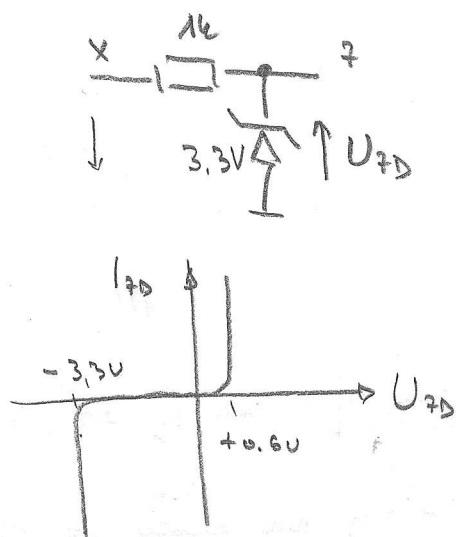 1k
X 7
3,3V U7D
I7D
-3,3V
U7D
+0.6V